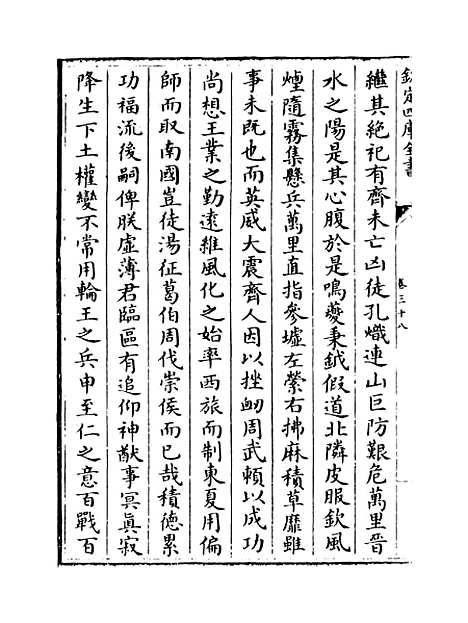 欽定四庫全書
卷三十八
繼其絶祀有齊未亡凶徒孔熾連山巨防艱危萬里晉
水之陽是其心腹於是鳴夔秉鉞假道北隣皮服欽風
煙隨霧集懸兵萬里直指參墟左縈右拂麻積草靡雖
事未既也而英威大震齊人因以挫衂周武頼以成功
尚想王業之勤逺維風化之始率西旅而制東夏用偏
師而取南國豈徒湯征葛伯周伐崇侯而已哉積徳累
功福流後嗣俾朕虚薄君臨區有追仰神猷事冥真寂
降生下土權變不常用輪王之兵申至仁之意百戰百